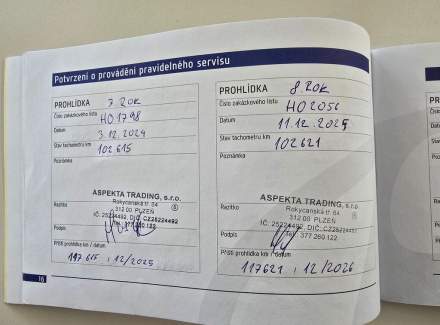 Potvrzení o provádění pravidelného servisu
PROHLÍDKA 7 ROK
Číslo zakázkového listu HO1798
Datum 3.12.2024
Stav tachometru km 102 615
Poznámka
ASPEKTA TRADING, s.r.o.
Rokycanská tř. 64
312 00 PLZEŇ
IČ: 25224492, DIČ: CZ25224492
Tel. 377 260 122
Razítko
Podpis
Příští prohlídka km / datum
117 615 , 12/2025
PROHLÍDKA 8 ROK
Číslo zakázkového listu HO2056
Datum 11.12.2025
Stav tachometru km 102621
Poznámka
ASPEKTA TRADING, s.r.o.
Rokycanská tř. 64
312 00 PLZEŇ
IČ: 25224492, DIČ: CZ25224492
Tel. 377 260 122
Razítko
Podpis
Příští prohlídka km / datum
117621 , 12/2026
16